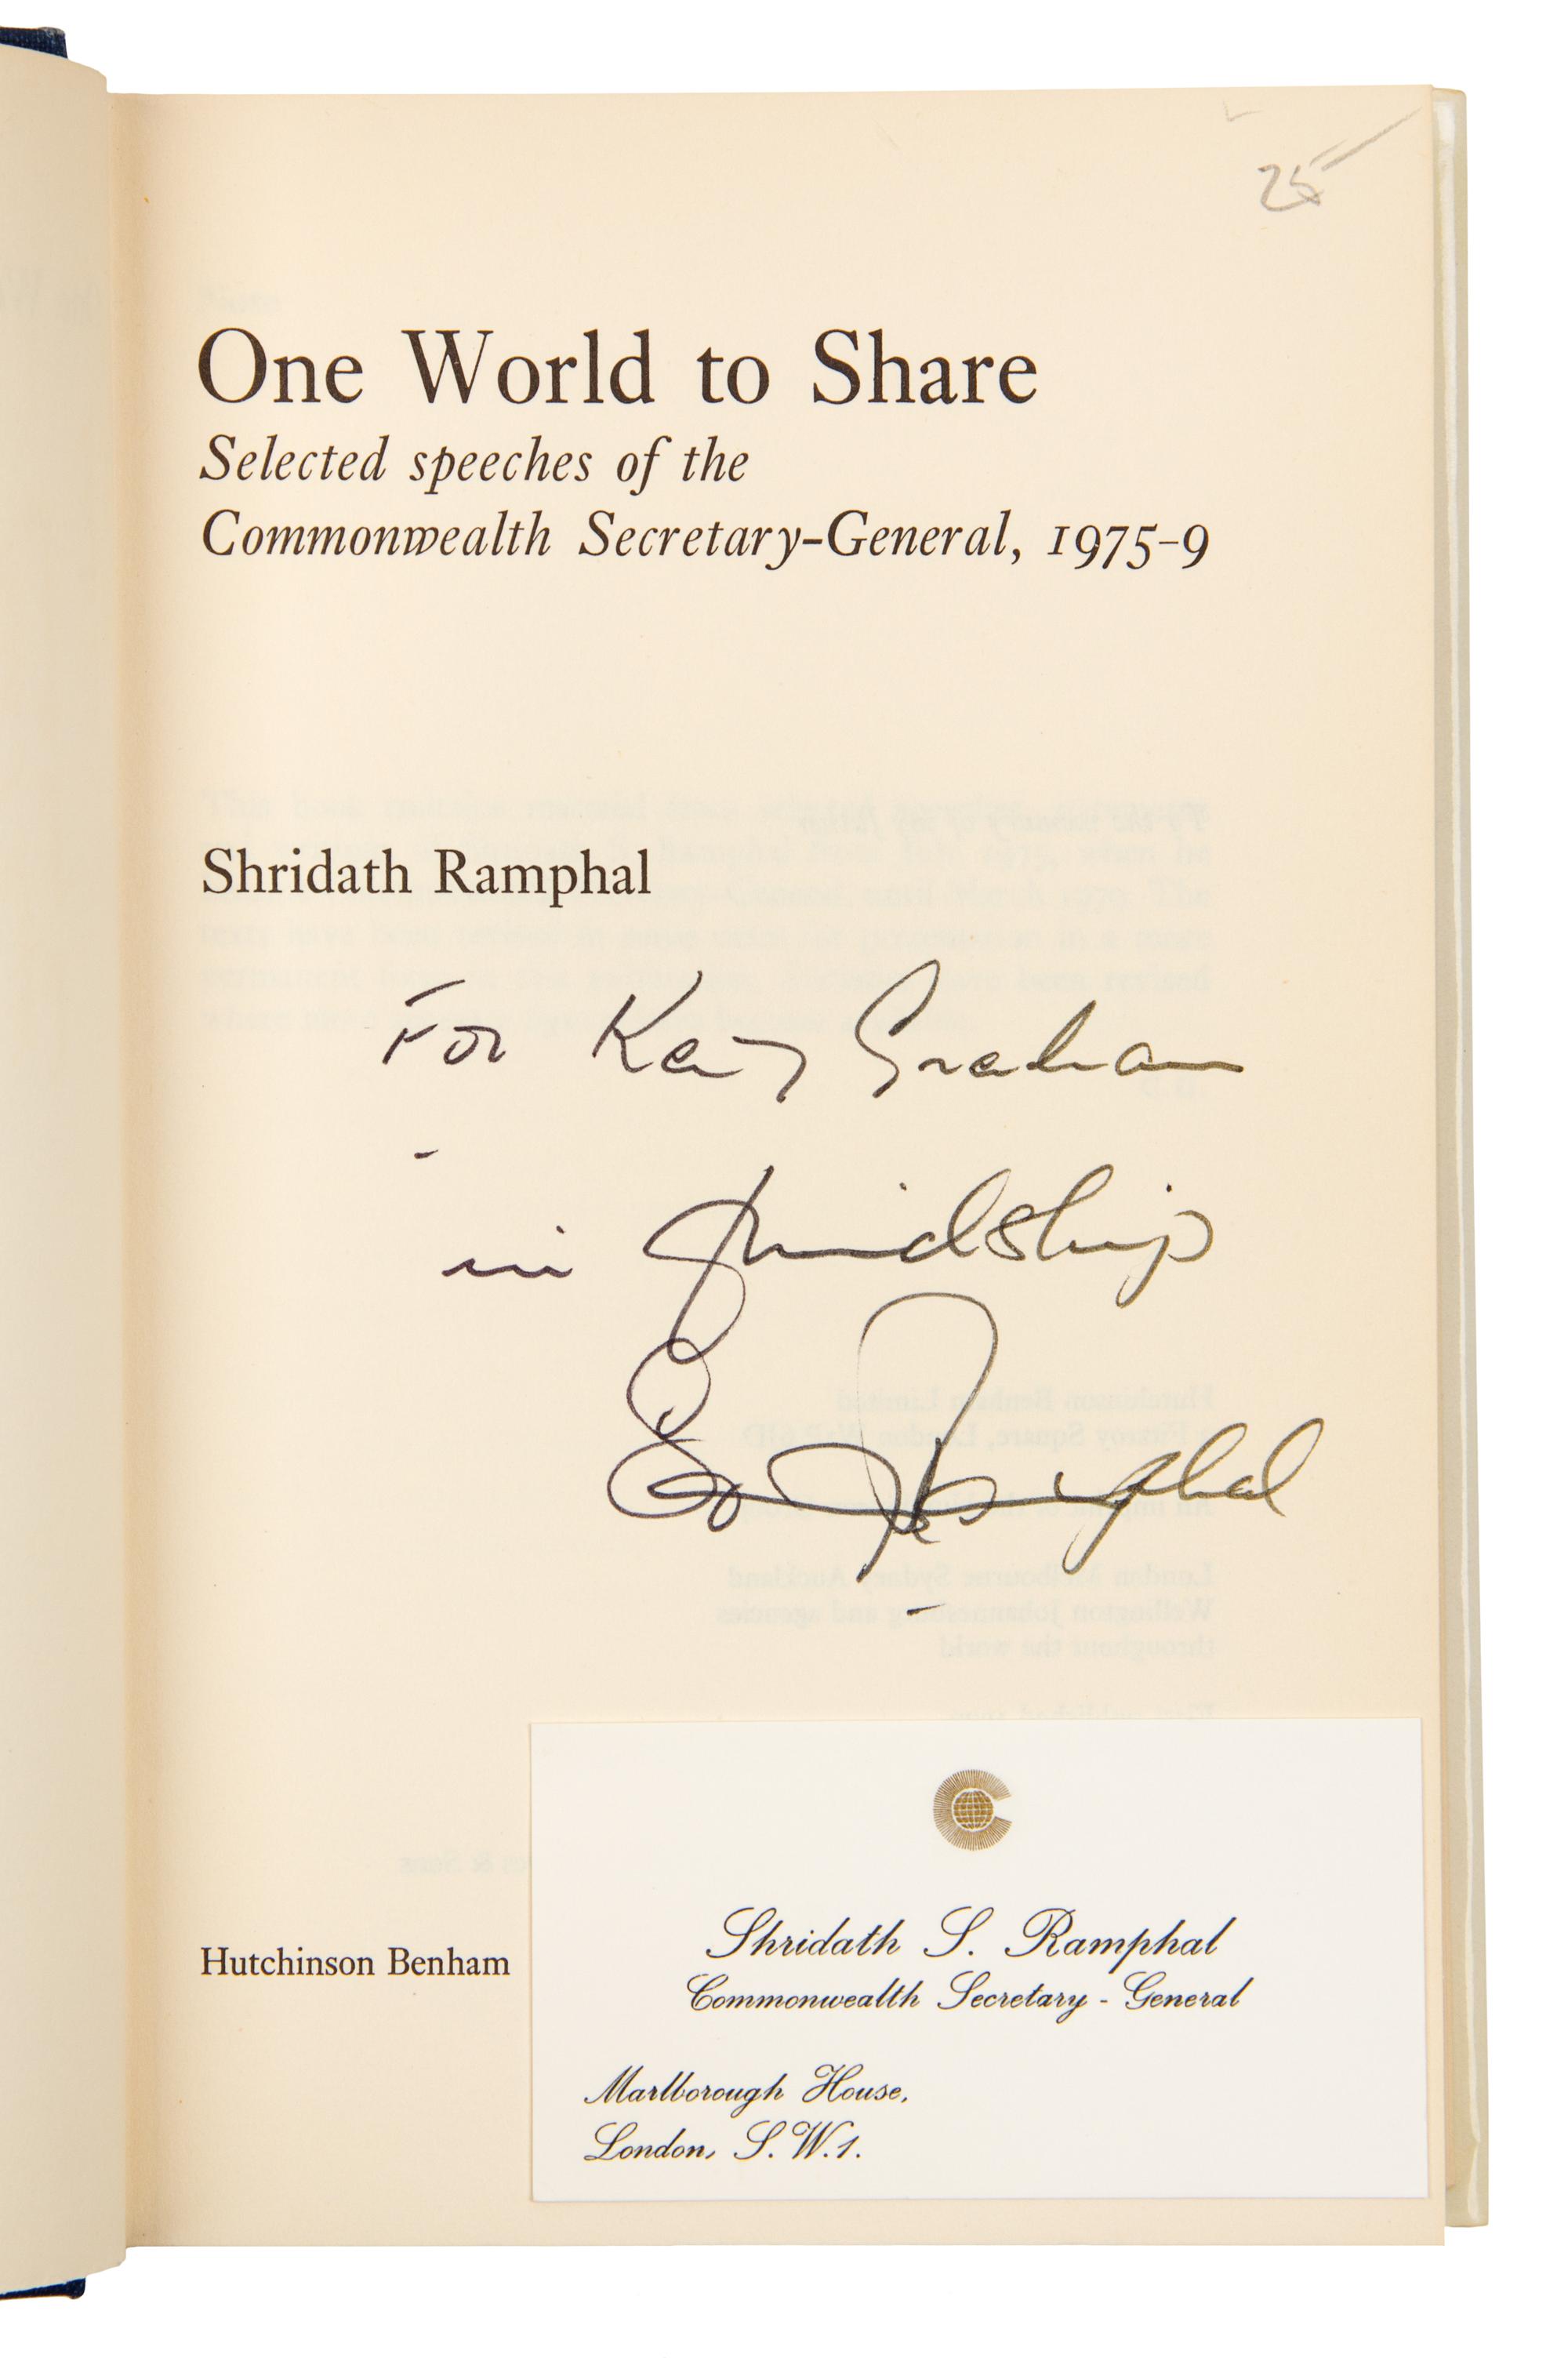 25
One World to Share
Selected speeches of the
Commonwealth Secretary-General, 1975-9
Shridath Ramphal
For Kay Graham
in friendship
Ramphal
Hutchinson Benham
Shridath S. Ramphal
Commonwealth Secretary - General
Marlborough House,
London, S.W.1.